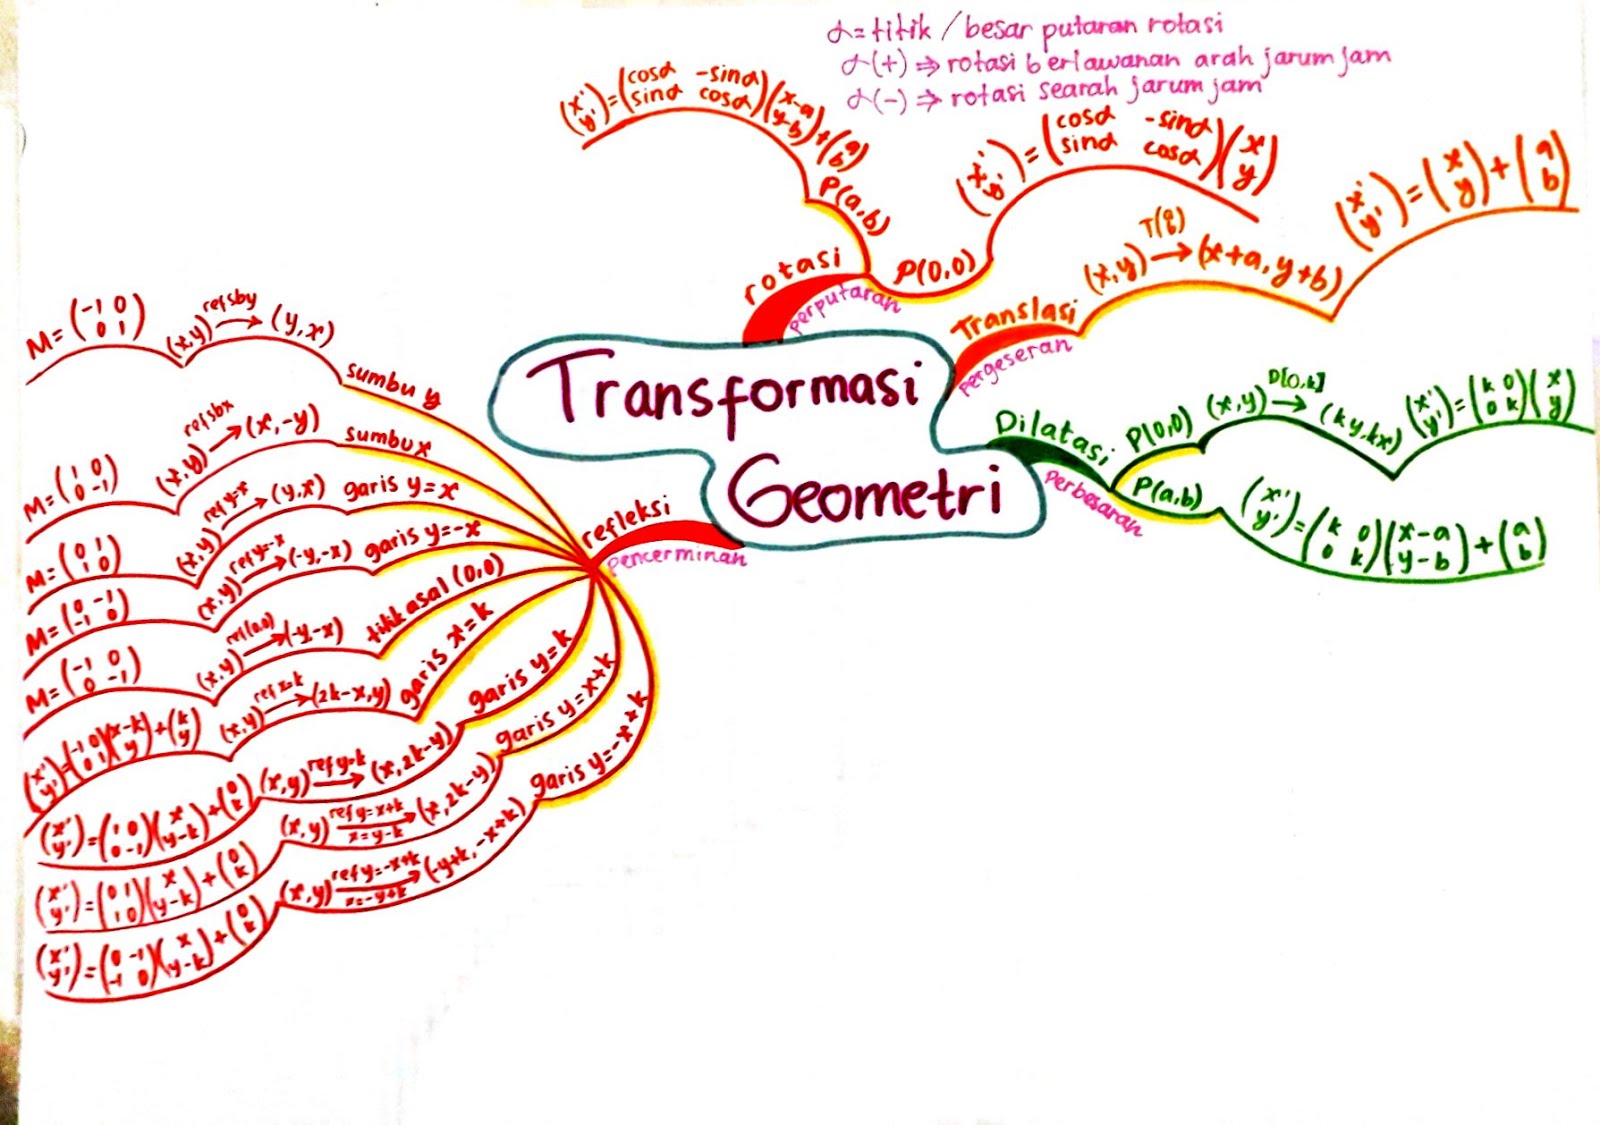 Transformasi
Geometri
α = titik / besar putaran rotasi
α(+) ⇒ rotasi berlawanan arah jarum jam
α(-) ⇒ rotasi searah jarum jam
rotasi
perputaran
P(a,b)
(x' y') = (cosα -sinα sinα cosα)(x-a y-b)+(a b)
P(0,0)
(x' y') = (cosα -sinα sinα cosα)(x y)
Translasi
pergeseran
(x,y) T(a b) → (x+a, y+b)
(x' y') = (x y) + (a b)
Dilatasi
Perbesaran
P(0,0)
(x,y) D[0,k] → (ky,kx)
(x' y') = (k 0 0 k)(x y)
P(a,b)
(x' y') = (k 0 0 k)(x-a y-b)+(a b)
refleksi
pencerminan
sumbu y
(x,y) ref sby → (y,x)
M = (-1 0 0 1)
sumbu x
(x,y) ref sbx → (x,-y)
M = (1 0 0 -1)
garis y=x
(x,y) ref y=x → (y,x)
M = (0 1 1 0)
garis y=-x
(x,y) ref y=-x → (-y,-x)
M = (0 -1 -1 0)
titik asal (0,0)
(x,y) ref(0,0) → (-y,-x)
M = (-1 0 0 -1)
garis x=k
(x,y) ref x=k → (2k-x,y)
(x' y') = (-1 0 0 1)(x-k y)+(k y)
garis y=k
(x,y) ref y=k → (x,2k-y)
(x' y') = (1 0 0 -1)(x y-k)+(0 k)
garis y=x+k
(x,y) ref y=x+k x=y-k → (x,2k-y)
(x' y') = (0 1 1 0)(x y-k)+(0 k)
garis y=-x+k
(x,y) ref y=-x+k x=-y+k → (-y+k,-x+k)
(x' y') = (0 -1 -1 0)(x y-k)+(0 k)